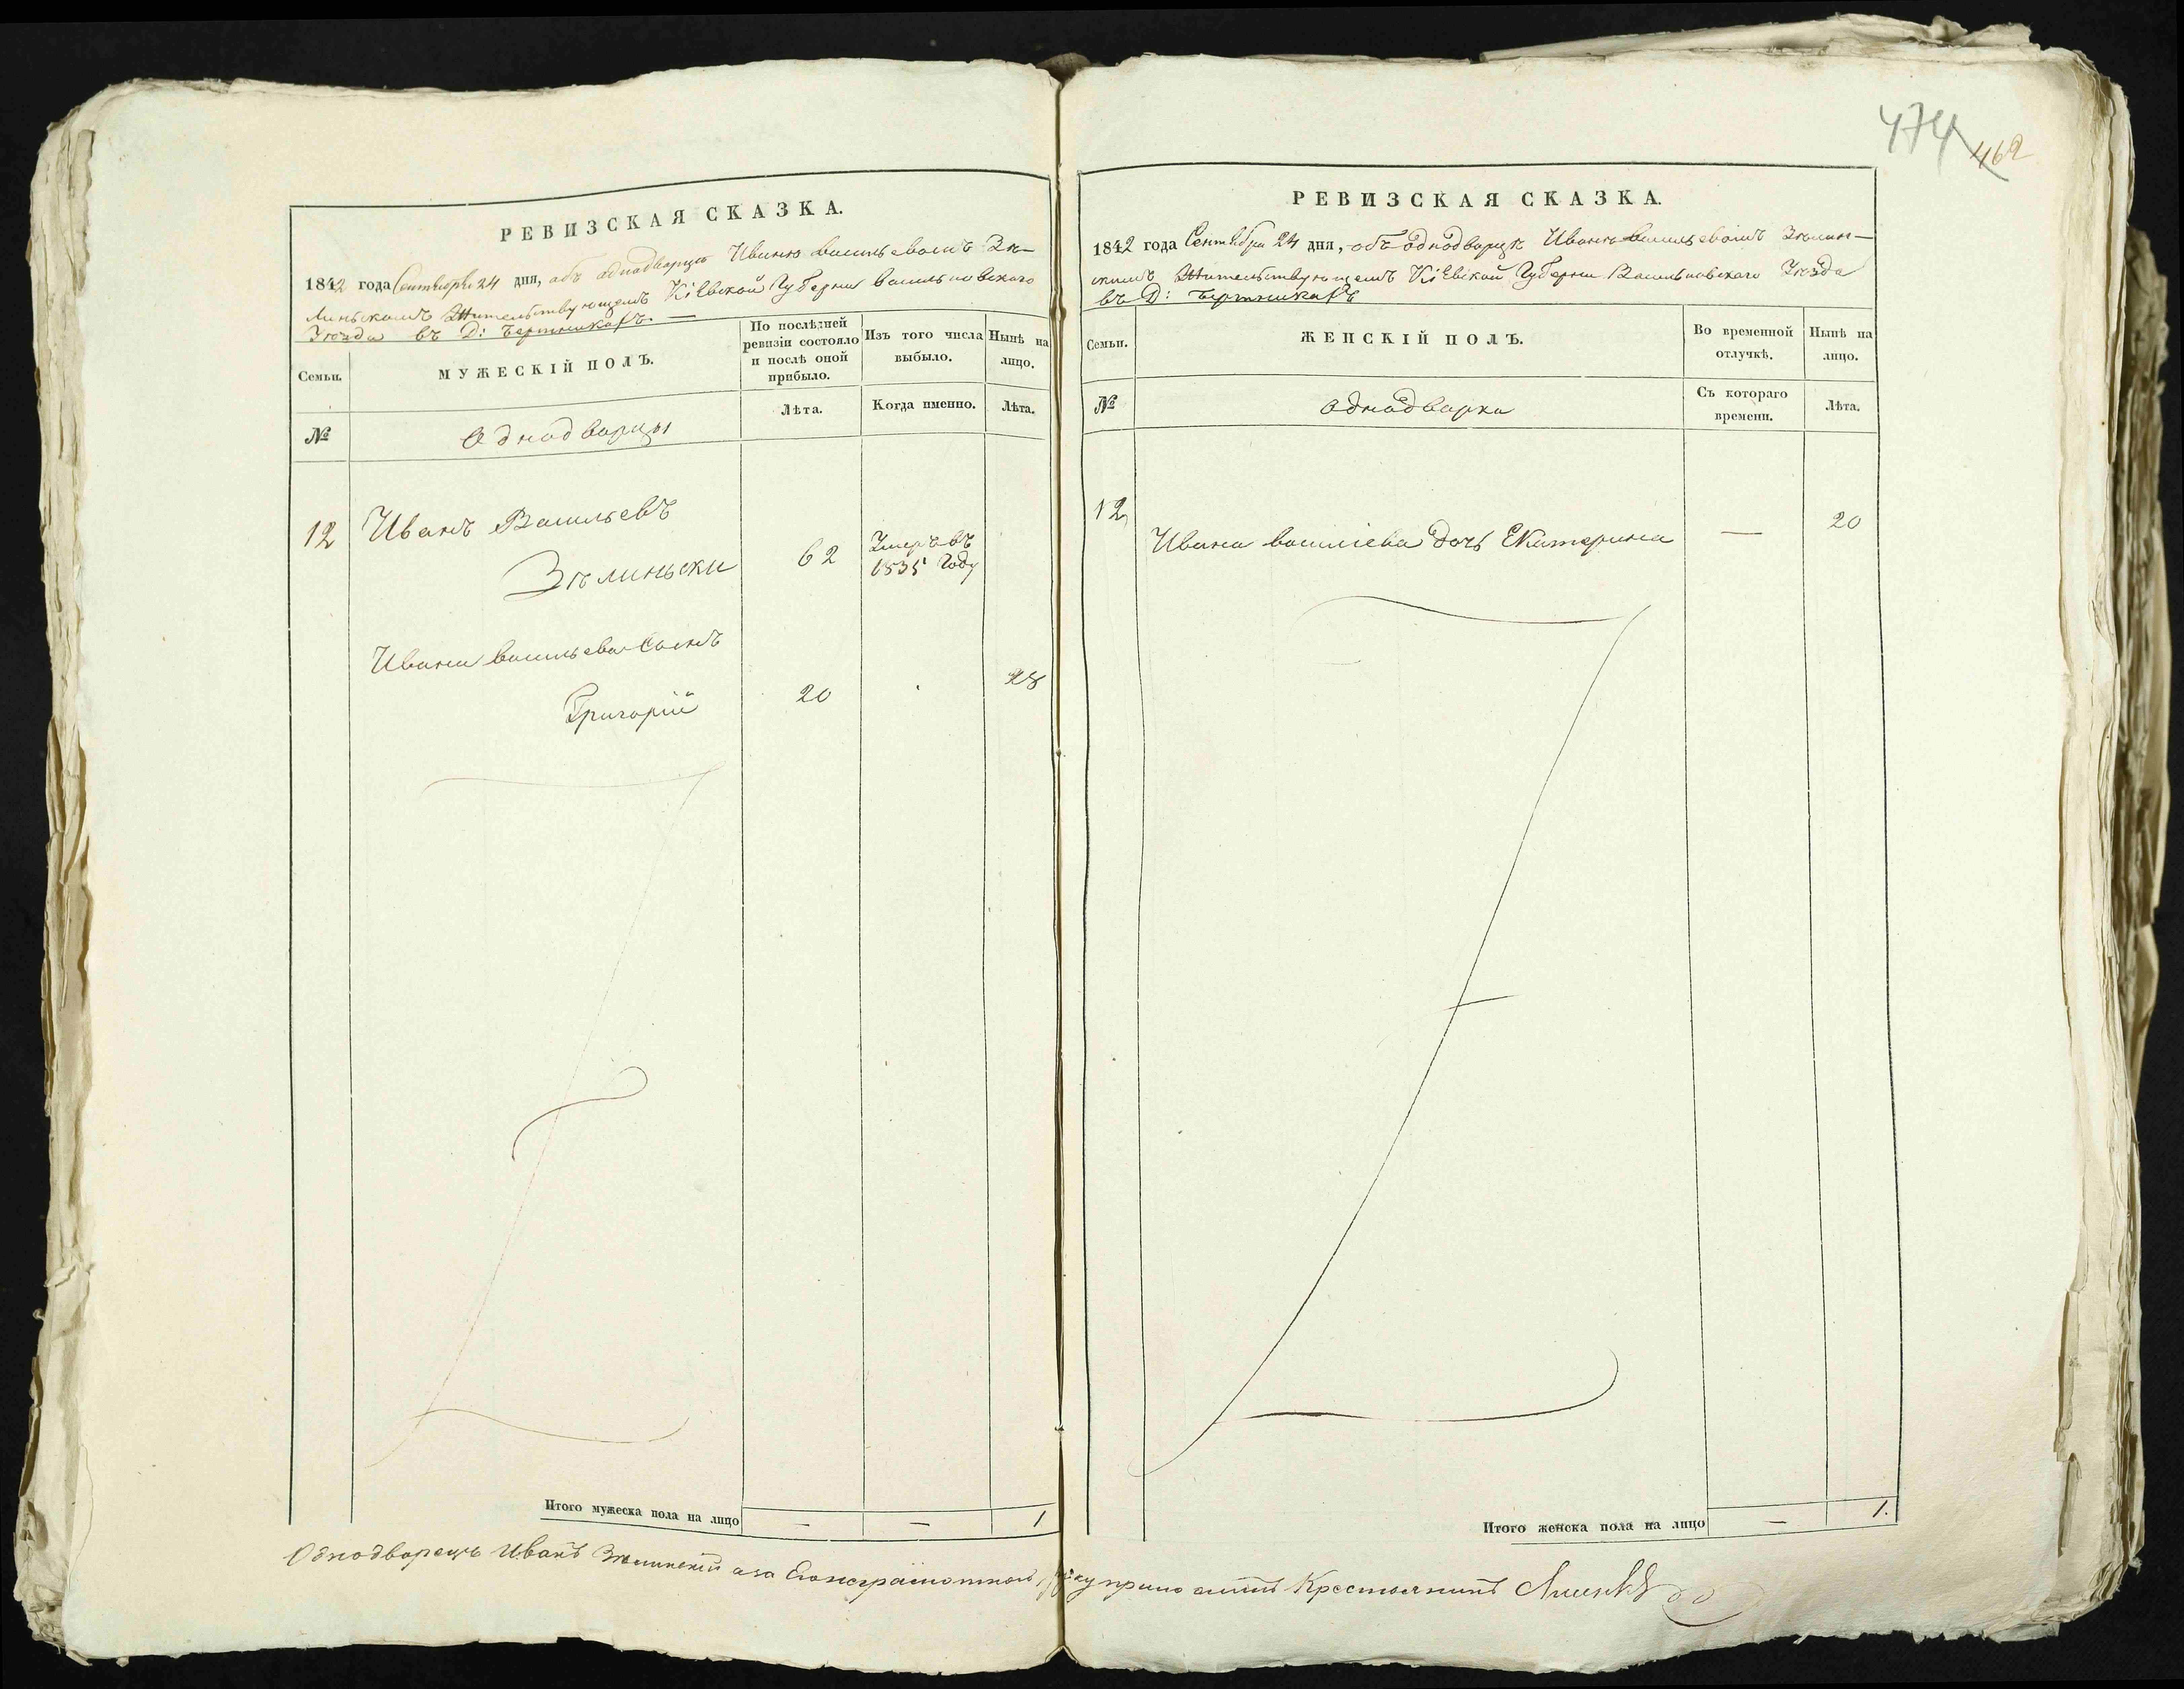 474
462
РЕВИЗСКАЯ СКАЗКА.
1842 года Сентября 24 дня, объ однодворце Иване Васильевомъ Зѣ-
линьскомъ Жительствующемъ Кіевской Губерни Васильковского
Уѣзда въ Д:
Семьи.
МУЖЕСКІЙ ПОЛЪ.
По послѣдней ревизіи состояло и послѣ оной прибыло.
Изъ того числа выбыло.
Нынѣ на лицо.
№
Однодворцы
Лѣта.
Когда именно.
Лѣта.
12 Иванъ Васильевъ
Зѣлиньски 62 Умеръ въ
1835 Году
Ивана Васильева Сынъ
Григорій 20 28
Итого мужеска пола на лицо — — 1
РЕВИЗСКАЯ СКАЗКА.
1842 года Сентября 24 дня, объ однодворцѣ Иванѣ Васильевомъ Зѣлин-
скимъ Жительствующемъ Кіевской Губерни Васильковскаго Уѣзда
въ Д:
Семьи.
ЖЕНСКІЙ ПОЛЪ.
Во временной отлучкѣ.
Нынѣ на лицо.
№
Однодворка
Съ котораго времени.
Лѣта.
12 Ивана Василіева дочь Екатерина — 20
Итого женска пола на лицо — 1.
Однодворецъ Иванъ Зѣлинский а за Крестьянинъ